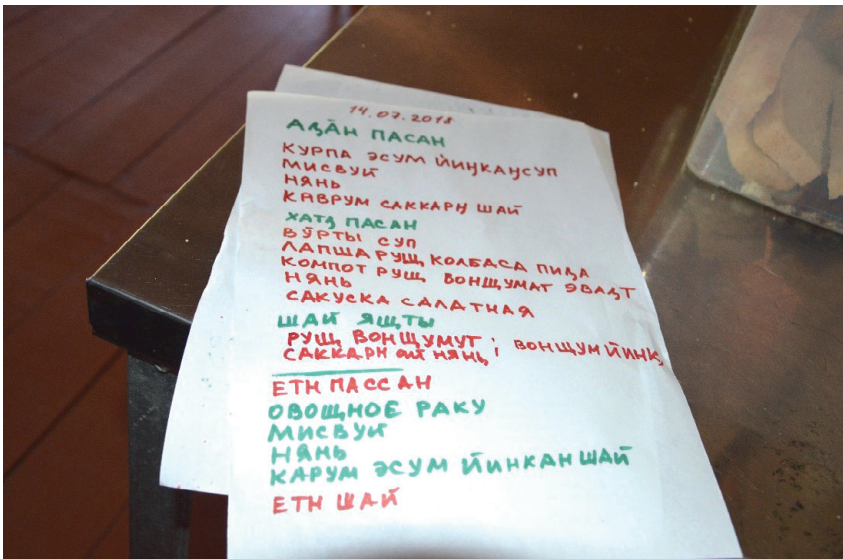 14.07.2018
АԓӐН ПАСАН
КУРПА ЭСУМ ЙИӇКАӇСУП
МИСВУЙ
НЯНЬ
КАВРУМ САККАРӇ ШАЙ
ХАТԓ ПАСАН
ВЎРТЫ СУП
ЛАПША РУЩ КОЛБАСА ПИԓА
КОМПОТ РУЩ ВОНЩУМАТ ЭВАԓТ
НЯНЬ
САКУСКА САЛАТНАЯ
ШАЙ ЯЩТЫ
РУЩ ВОНЩУМУТ; ВОНЩУМ ЙИНК
САККАРН ай НЯНЬ;
ЕТН ПАССАН
ОВОЩНОЕ РАКУ
МИСВУЙ
НЯНЬ
КАРУМ ЭСУМ ЙИНКАН ШАЙ
ЕТН ШАЙ